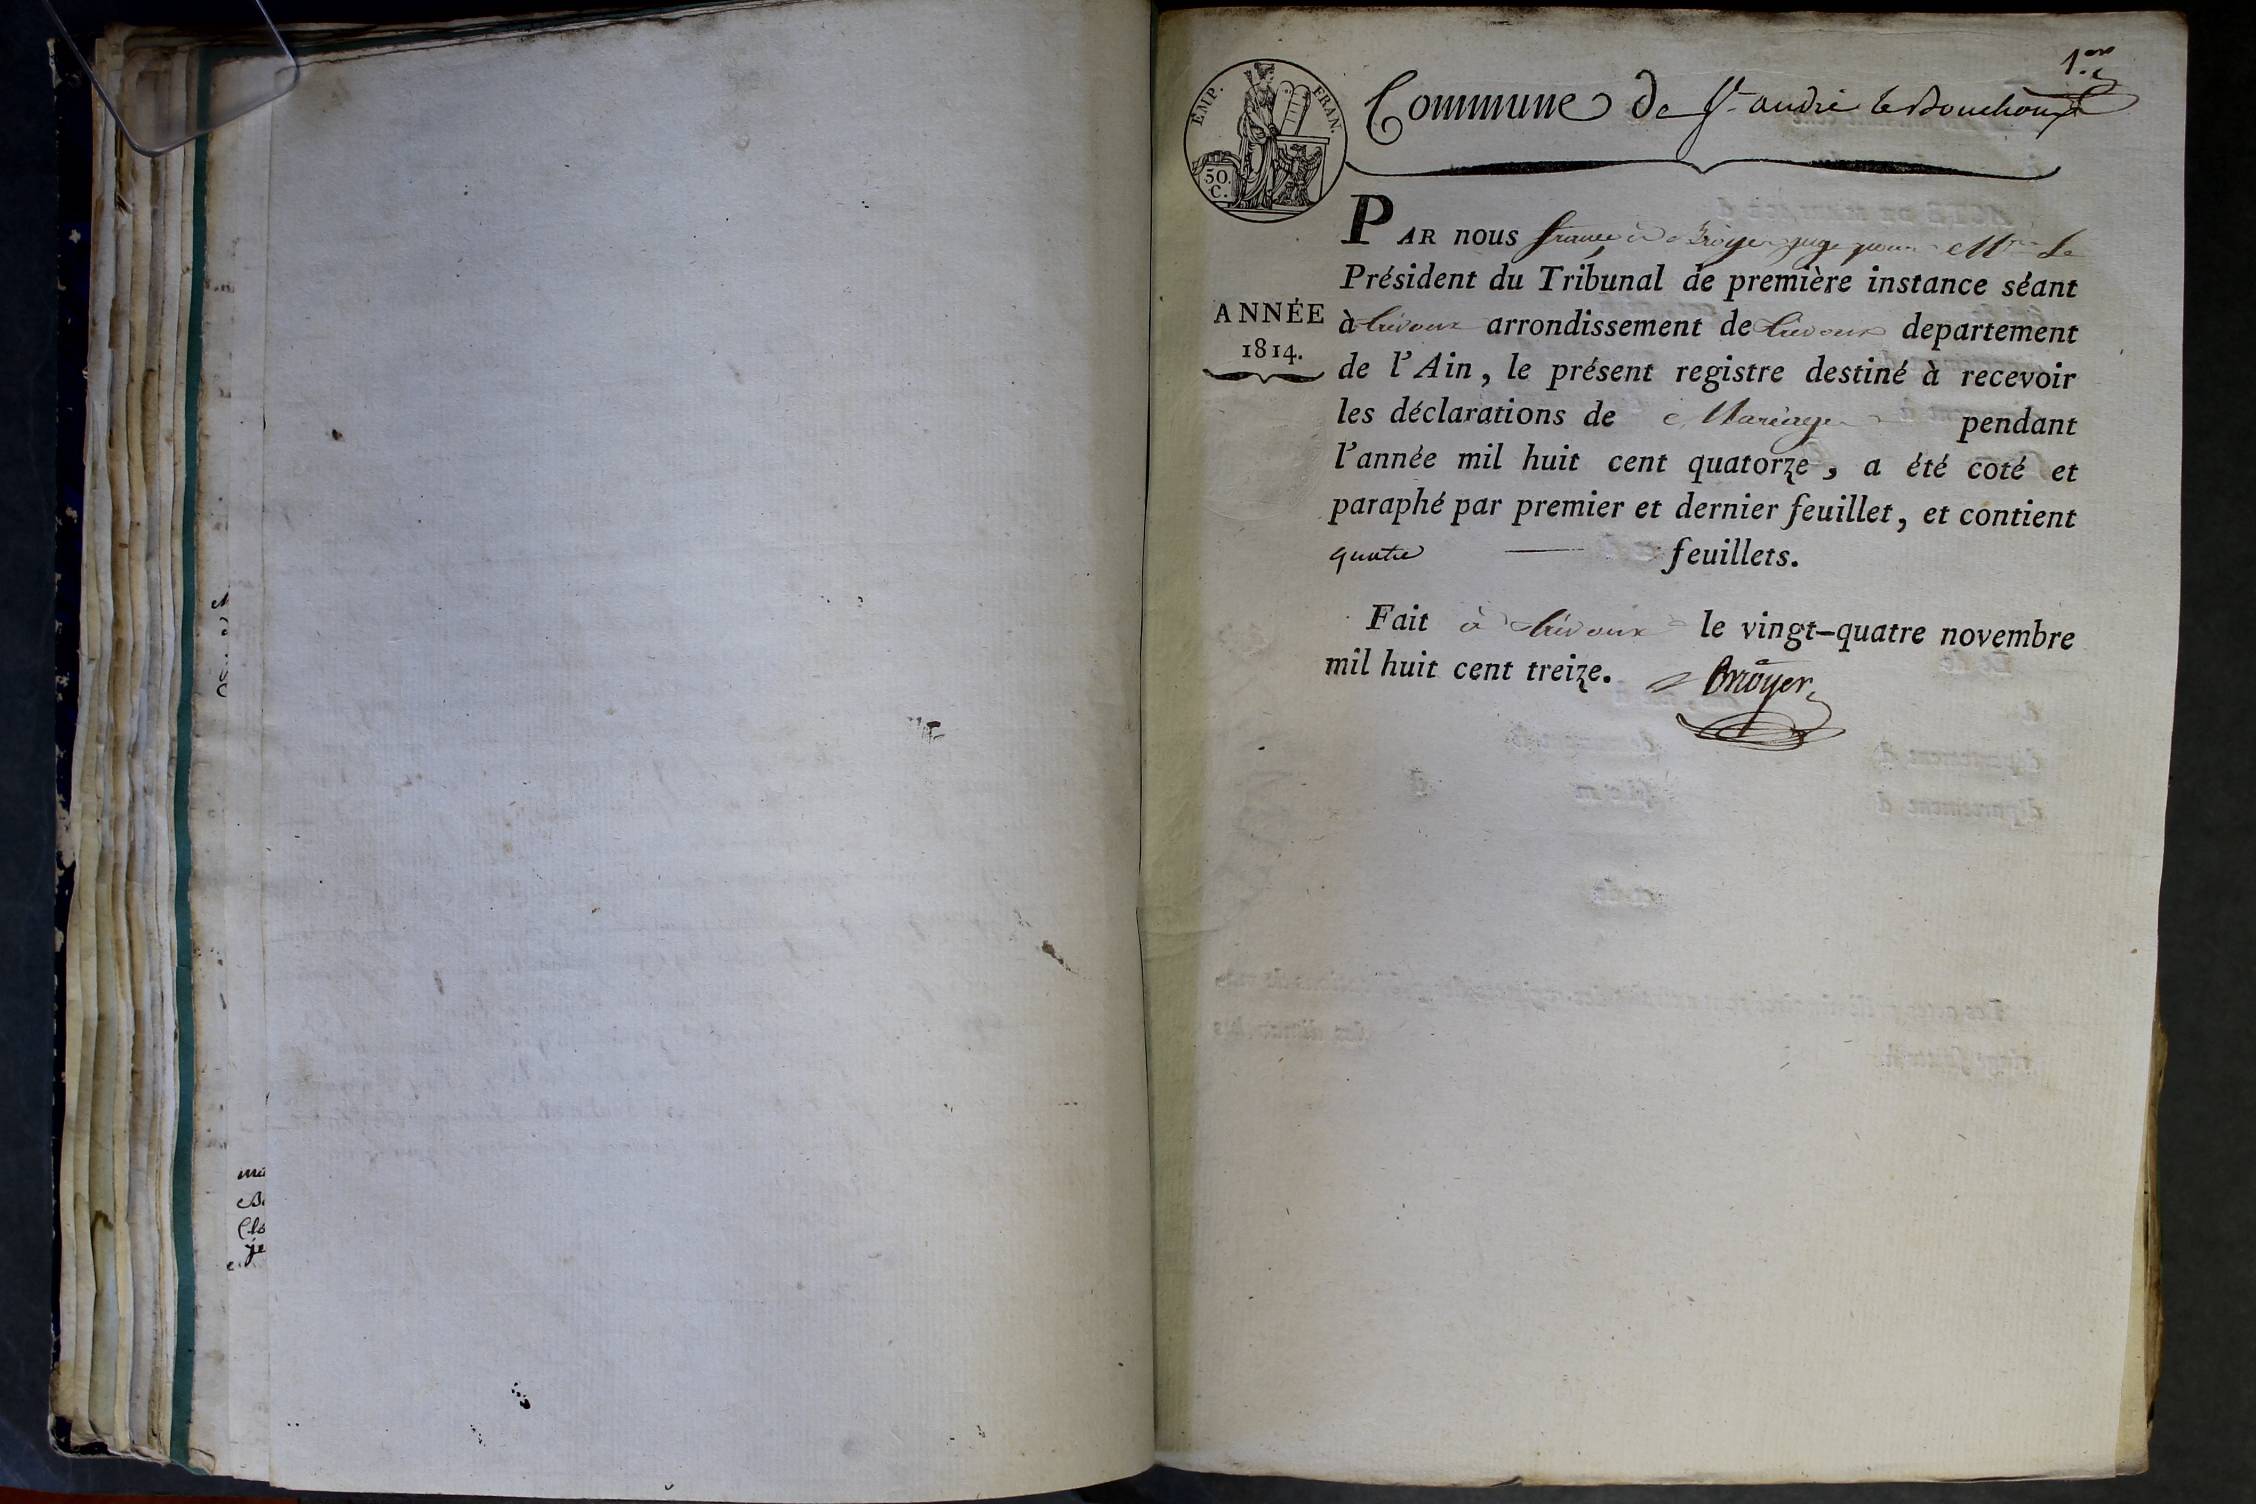 1.er
EMP. FRAN.
50.
C.
Commune de St. andré le Bouchoux
PAR nous françois Broyer juge pour Mr. le
Président du Tribunal de première instance séant
ANNÉE
1814.
à trévoux arrondissement de trévoux departement
de l'Ain, le présent registre destiné à recevoir
les déclarations de Mariage pendant
l'année mil huit cent quatorze, a été coté et
paraphé par premier et dernier feuillet, et contient
quatre — feuillets.
Fait à trévoux le vingt-quatre novembre
mil huit cent treize.
Broyer
ma